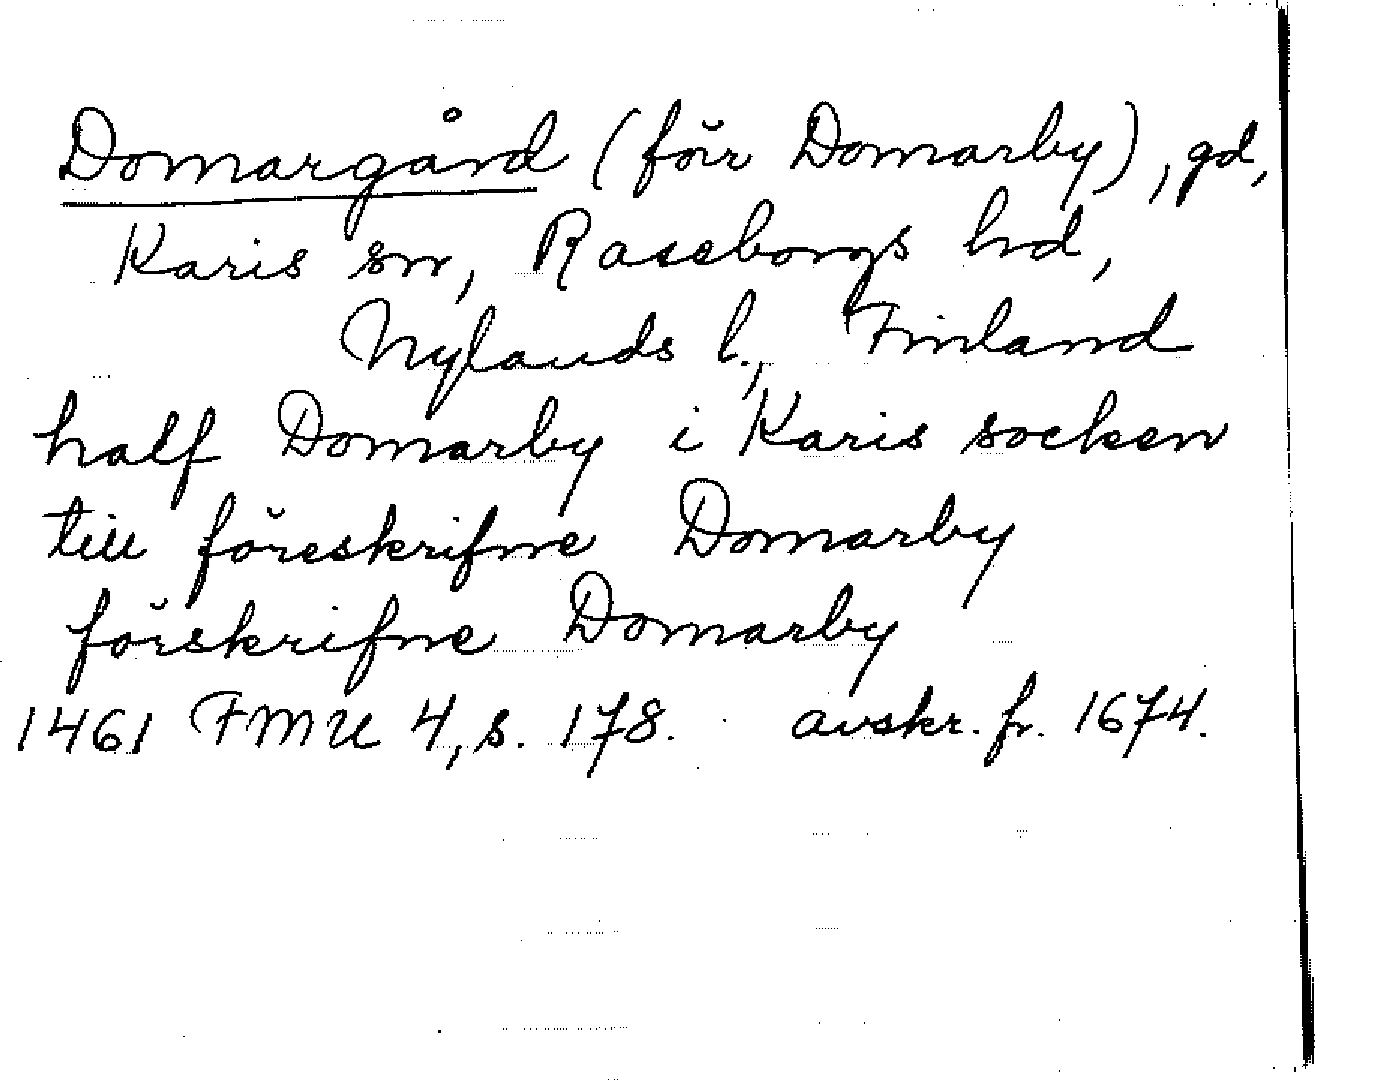 Domargård (förr Domarby), gd,
Karis sn, Raseborgs hd,
Nylands l., Finland
half Domarby i Karis socken
till föreskrifne Domarby
förskrifne Domarby
1461 FMU 4, s. 178. avskr. fr. 1674.